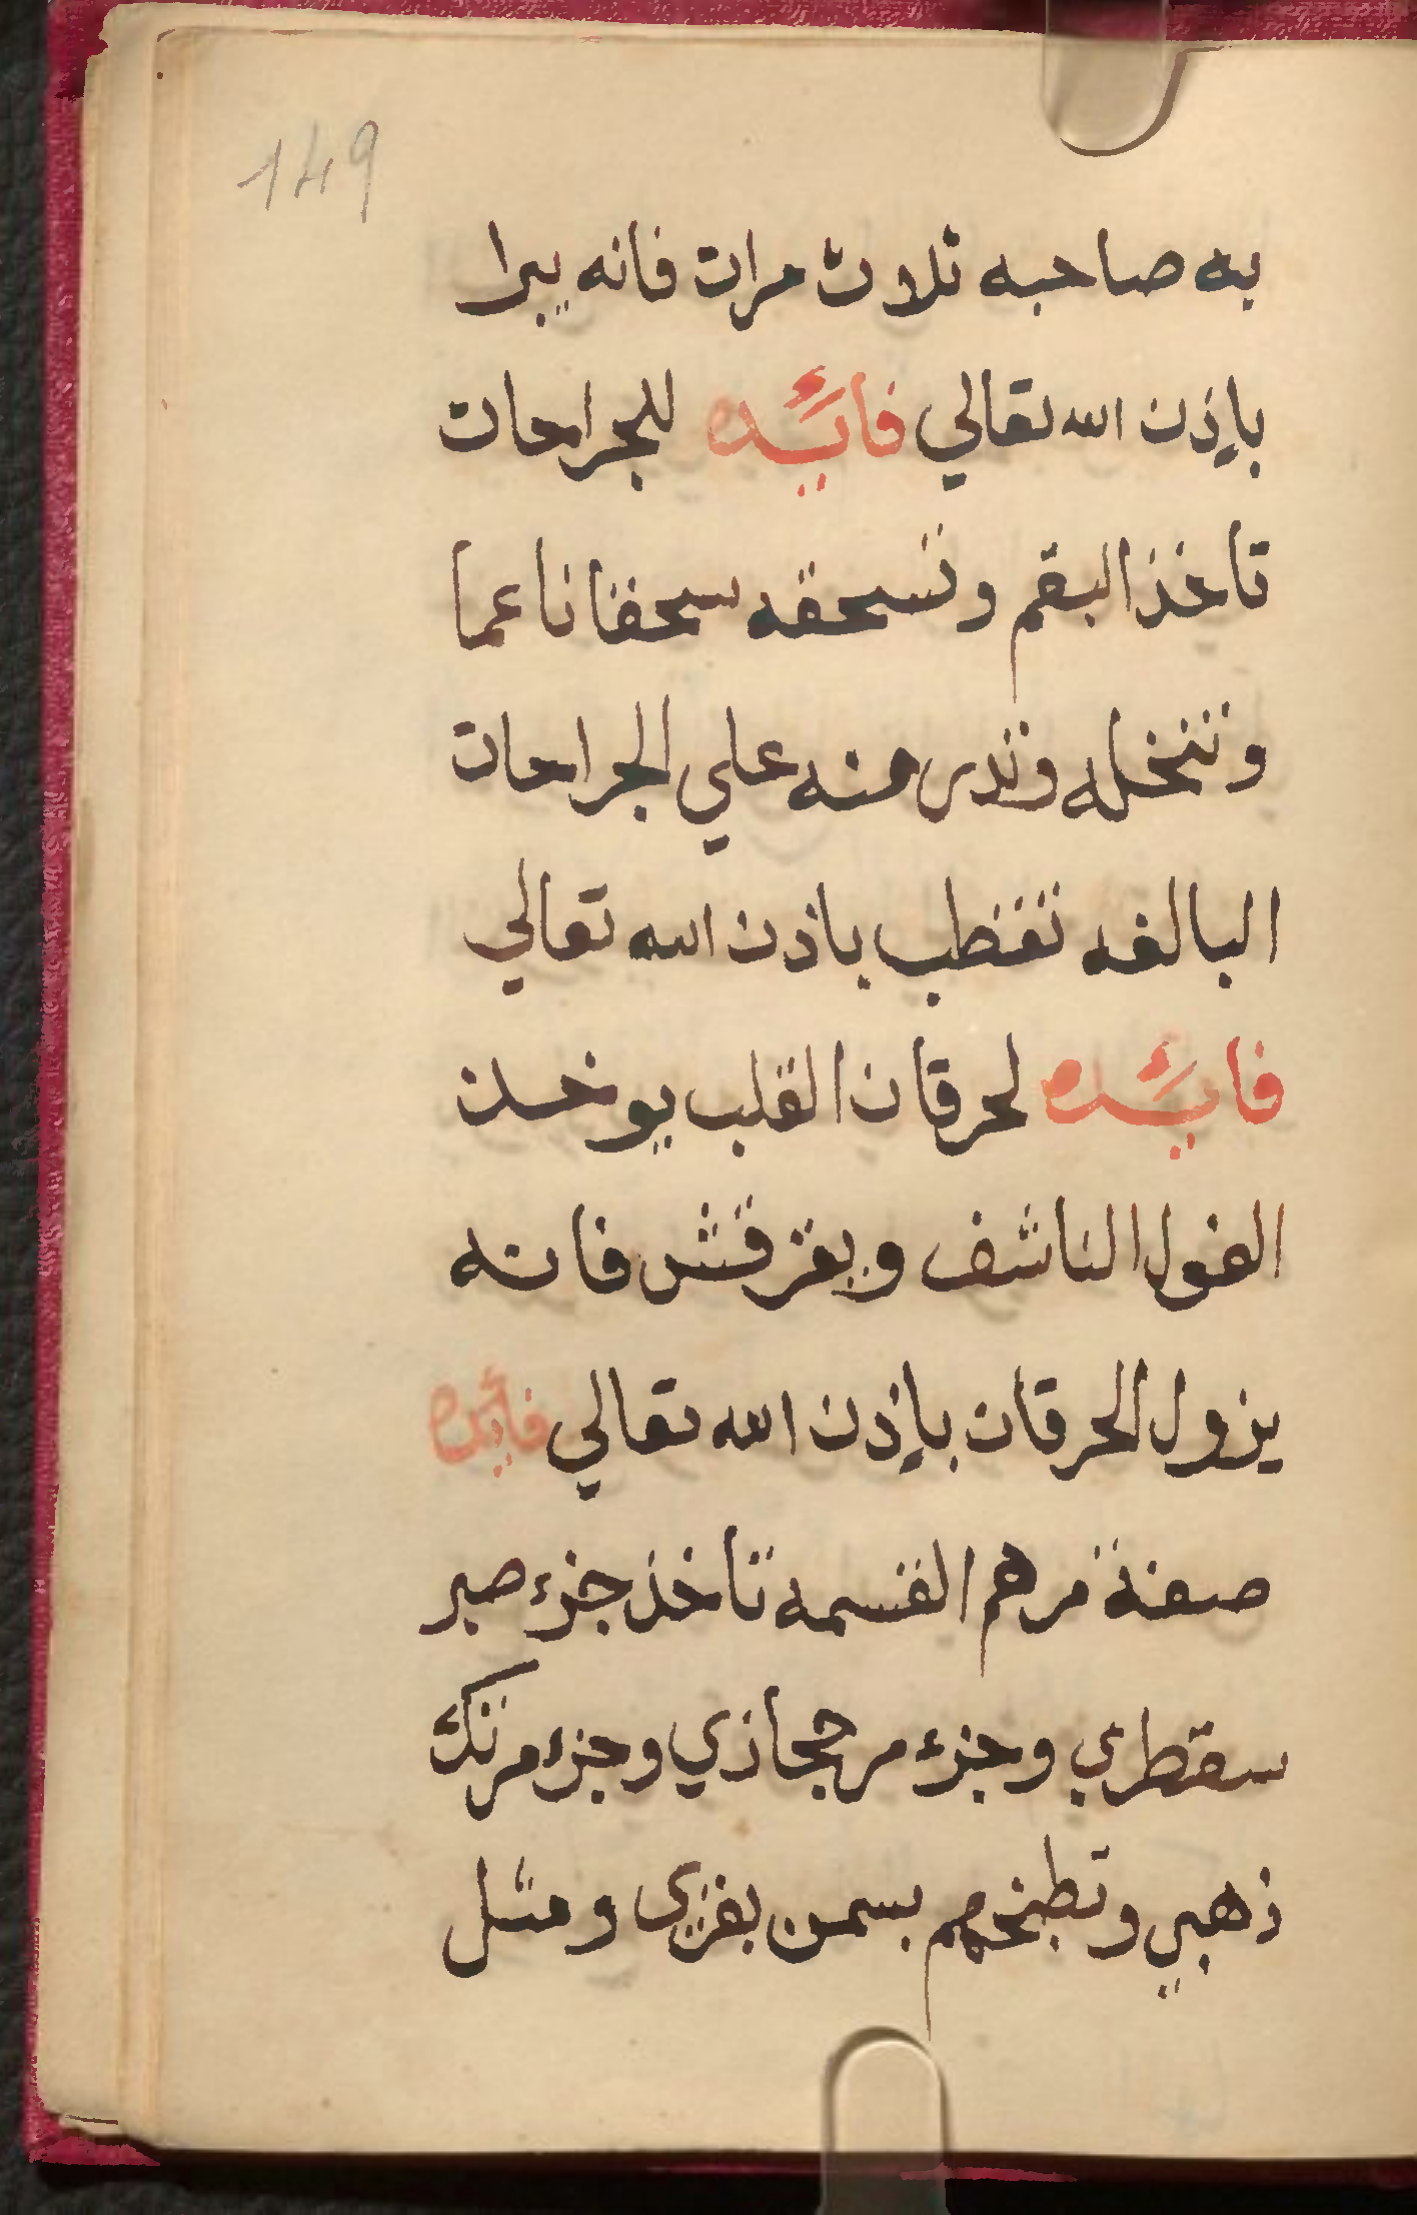 149
به صاحبه ثلاث مرات فانه يبرا
بإذن الله تعالي فايئده للجراحات
تاخذ البقم وتسحقه سحقا ناعما
وتنخله وتدر منه علي الجراحات
البالغه تقطب باذن الله تعالي
فايئده لحرقان القلب يوخذ
الفول الناشف ويقرقش فانه
يزول الحرقان بإذن الله تعالي فايئده
صفة مرهم القسمه تاخذ جزء صبر
سقطري وجزء مر حجازي وجزء مرتك
ذهبي وتطبخهم بسمن بقري ومثل